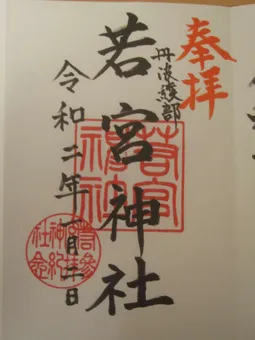 奉拝
丹波綾部
若宮神社
令和二年一月三日
若宮
神社